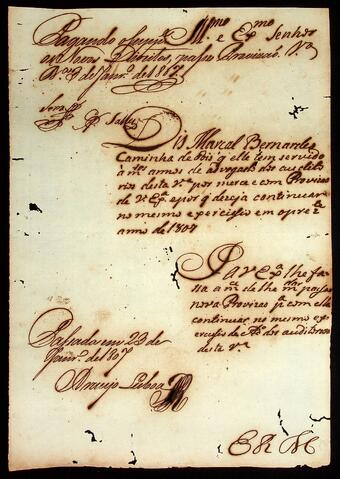 Pagando o Ill.mo e Ex.mo Senhor
os Novos Direitos, passe Provizaõ. V.a
R.a 9 de Janr.o de 1807
Diz Marcal Bernardes
Caminha de Sâ q elle tem servido
a m.tos annos de advogado dos auditorios
desta V.a por merce e com Provizaõ
de V Ex.a e por q dezeja continuar
no mesmo exercicio em o prez.e
anno de 1807
P a V Ex.a lhe fa
sa a m.ce de lhe m.dar passar
nova Provizaõ p.a com ella
continuar no mesmo exer
cicio de Ad.o dos auditorios
desta V.a
Passada em 23 de
Janr.o de 1807
Araujo Lisboa
E R M